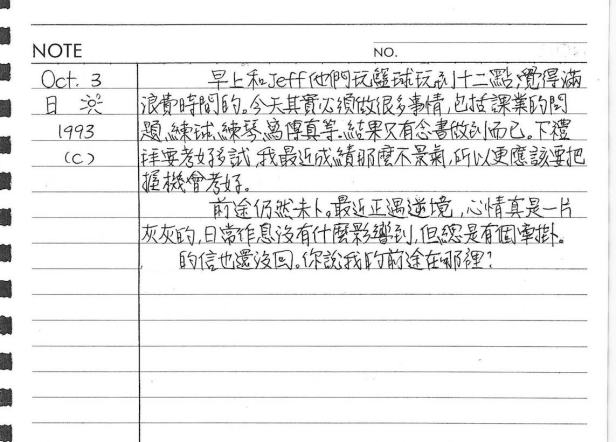 NOTE NO.
Oct. 3 早上和Jeff他們玩籃球玩到十二點,覺得滿
日 浪費時間的。今天其實必須做很多事情,包括課業的問
1993 題、練球、練琴、寫傳真等,結果只有念書做到而已。下禮
(C) 拜要考好多試,我最近成績那麼不景氣,所以更應該要把
握機會考好。
前途仍然未卜。最近正遇逆境,心情真是一片
灰灰的,日常作息沒有什麼影響到,但總是有個牽掛。
的信也還沒回。你說我的前途在哪裡?